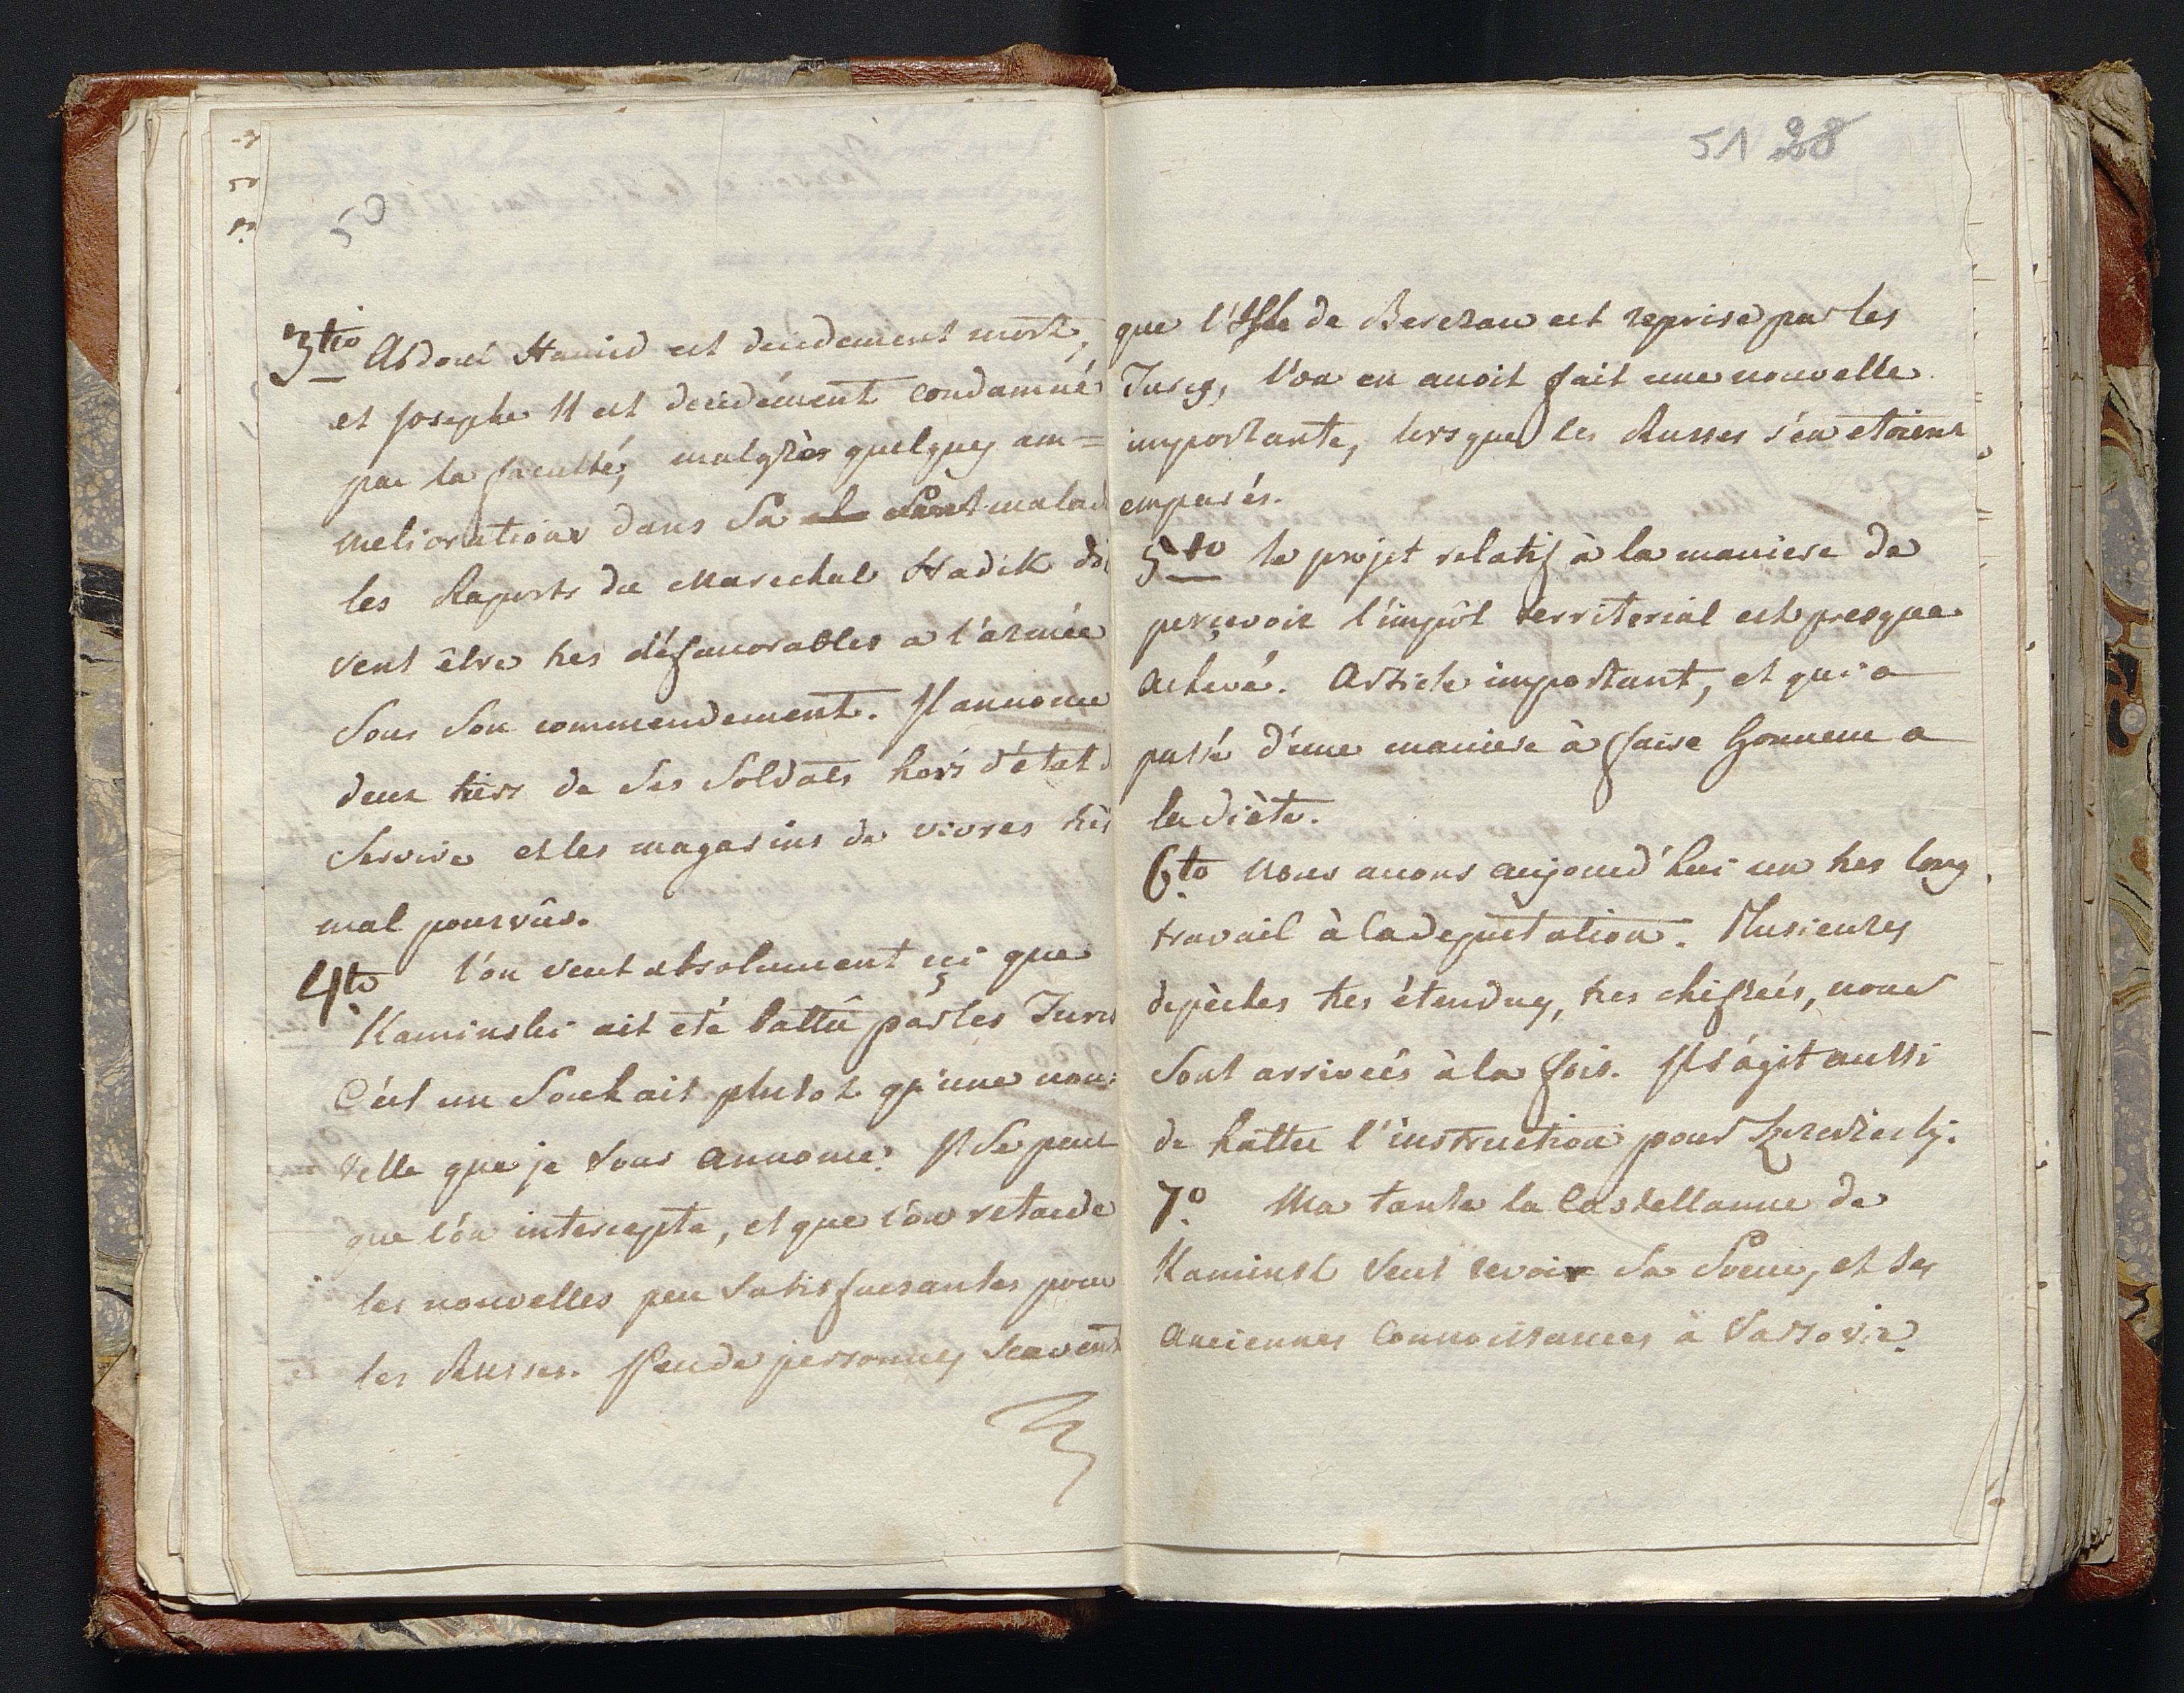 50
3tio Abdoul Hamid est decidement mort,
et Josephe II est decidément condamné
par la faculté, malgrès quelques am=
meliorations dans sa malad
les Raports du Marechal Hadik doi
vent être tres défavorables a l'armée
sous son commendement. Il annonce
deux tiers de ses soldats hors d'état d
servire et les magasins de vivres très
mal pourvûs.
4to l'on veut absolument içi que
Kaminski ait été battû par les Turcs
C'est un souhait plutot qu'une nou=
velle que je vous annonce. Il se peut
que l'on intercepte, et que l'on retarde
les nouvelles peu satisfaisantes pour
les Russes. Peu de personnes scavent
51 28
que l'Isle de Berezan est reprise par les
Turcs, l'on en avoit fait une nouvelle
importante, lorsque les Russes s'en etoient
emparés.
5to le projet relatif à la maniere de
perçevoir l'impôt territorial est presque
achevé. Article important, et qui a
passé d'une maniere à faire honneur a
la diète.
6to Nous avons aujourd'hui un tres long
travail à la deputation. Plusieures
depèches tres étendues, tres chifréés, nous
sont arrivéés à la fois. Il s'ágit aussi
de hatter l'instruction pour
7o Ma tante la Castellanne de
Kaminsk veut revoir sa Soeur, et ses
anciennes connoissances à Varsovie.